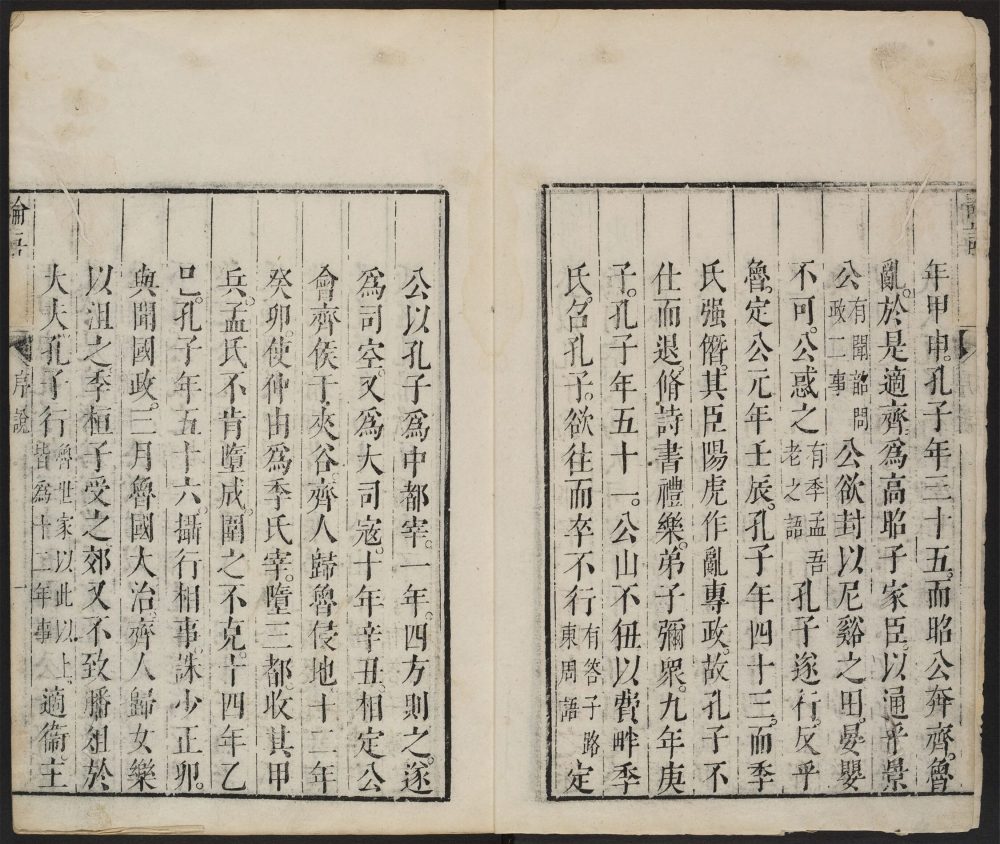 年甲申。孔子年三十五。而昭公奔齊。魯
亂。於是適齊。爲高昭子家臣。以通乎景
公有聞韶問政二事公欲封以尼谿之田。晏嬰
不可。公惑之有季孟吾老之語孔子遂行。反乎
魯。定公元年壬辰。孔子年四十三。而季
氏强僭。其臣陽虎作亂專政。故孔子不
仕而退。脩詩書禮樂。弟子彌衆。九年庚
子。孔子年五十一。公山不狃以費畔季
氏。召孔子。欲往而卒不行有答子路東周語定
公以孔子爲中都宰。一年。四方則之。遂
爲司空。又爲大司寇。十年辛丑。相定公
會齊侯于夾谷。齊人歸魯侵地。十二年
癸卯。使仲由爲季氏宰。墮三都。收其甲
兵。孟氏不肯墮成。圍之不克。十四年乙
巳。孔子年五十六。攝行相事。誅少正卯。
與聞國政。三月。魯國大治。齊人歸女樂
以沮之。季桓子受之。郊又不致膰俎於
大夫。孔子行魯世家以此以上皆爲十二年事適衞。主
論語
序說
一